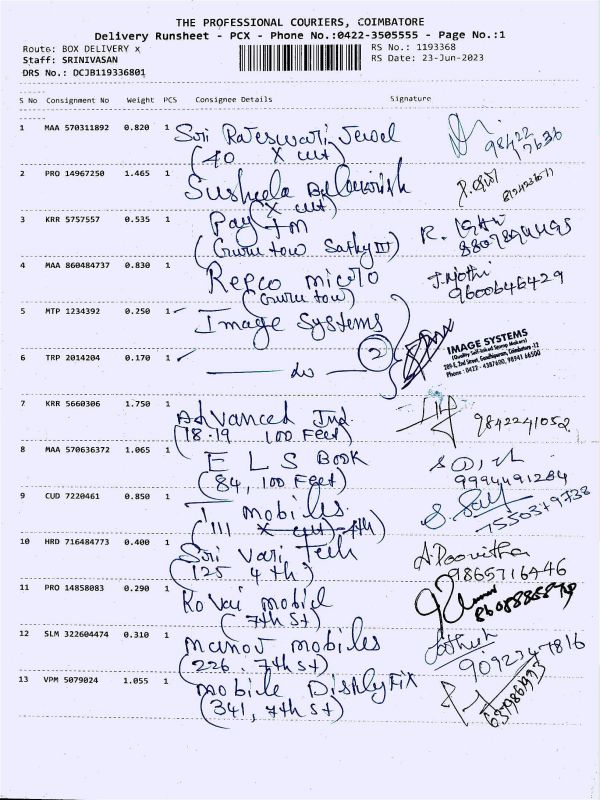 THE PROFESSIONAL COURIERS, COIMBATORE
Delivery Runsheet - PCX - Phone No.:0422-3505555 - Page No.:1
Route: BOX DELIVERY x
RS No.: 1193368
Staff: SRINIVASAN
RS Date: 23-Jun-2023
DRS No.: DCJB119336801
S No Consignment No Weight PCS Consignee Details Signature
1 MAA 570311892 0.820 1 Sri Rajeswari Jewel
(40 X cut)
98422 17636
2 PRO 14967250 1.465 1 Susheela
(X cut)
3 KRR 5757557 0.535 1 Pay TM
(Guru tow Sathy III)
R.
4 MAA 860484737 0.830 1 Repco micro
(Guru tow)
J. Nothi
9600646429
5 MTP 1234392 0.250 1 Image Systems
6 TRP 2014204 0.170 1 do 2
IMAGE SYSTEMS
(Quality Self-Inked Stamp Makers)
289-E, 2nd Street, Gandhipuram, Coimbatore -12
Phone : 0422 - 4387600, 98941 66500
7 KRR 5660306 1.750 1 Advanced Ind
(18-19 100 Feet)
9842241052
8 MAA 570636372 1.065 1 E L S Book
(84, 100 Feet)
9994491284
9 CUD 7220461 0.850 1 T mobiles
(111 X cut 4th)
7550379738
10 HRD 716484773 0.400 1 Sri Vari Tech
(125 4th)
A. Poovitha
9865716446
11 PRO 14858083 0.290 1 Kovai mobil
(7th St)
12 SLM 322604474 0.310 1 manoj mobiles
(226, 7th St)
9092347816
13 VPM 5079024 1.055 1 mobile Disply Fix
(341, 7th St)
6379861993